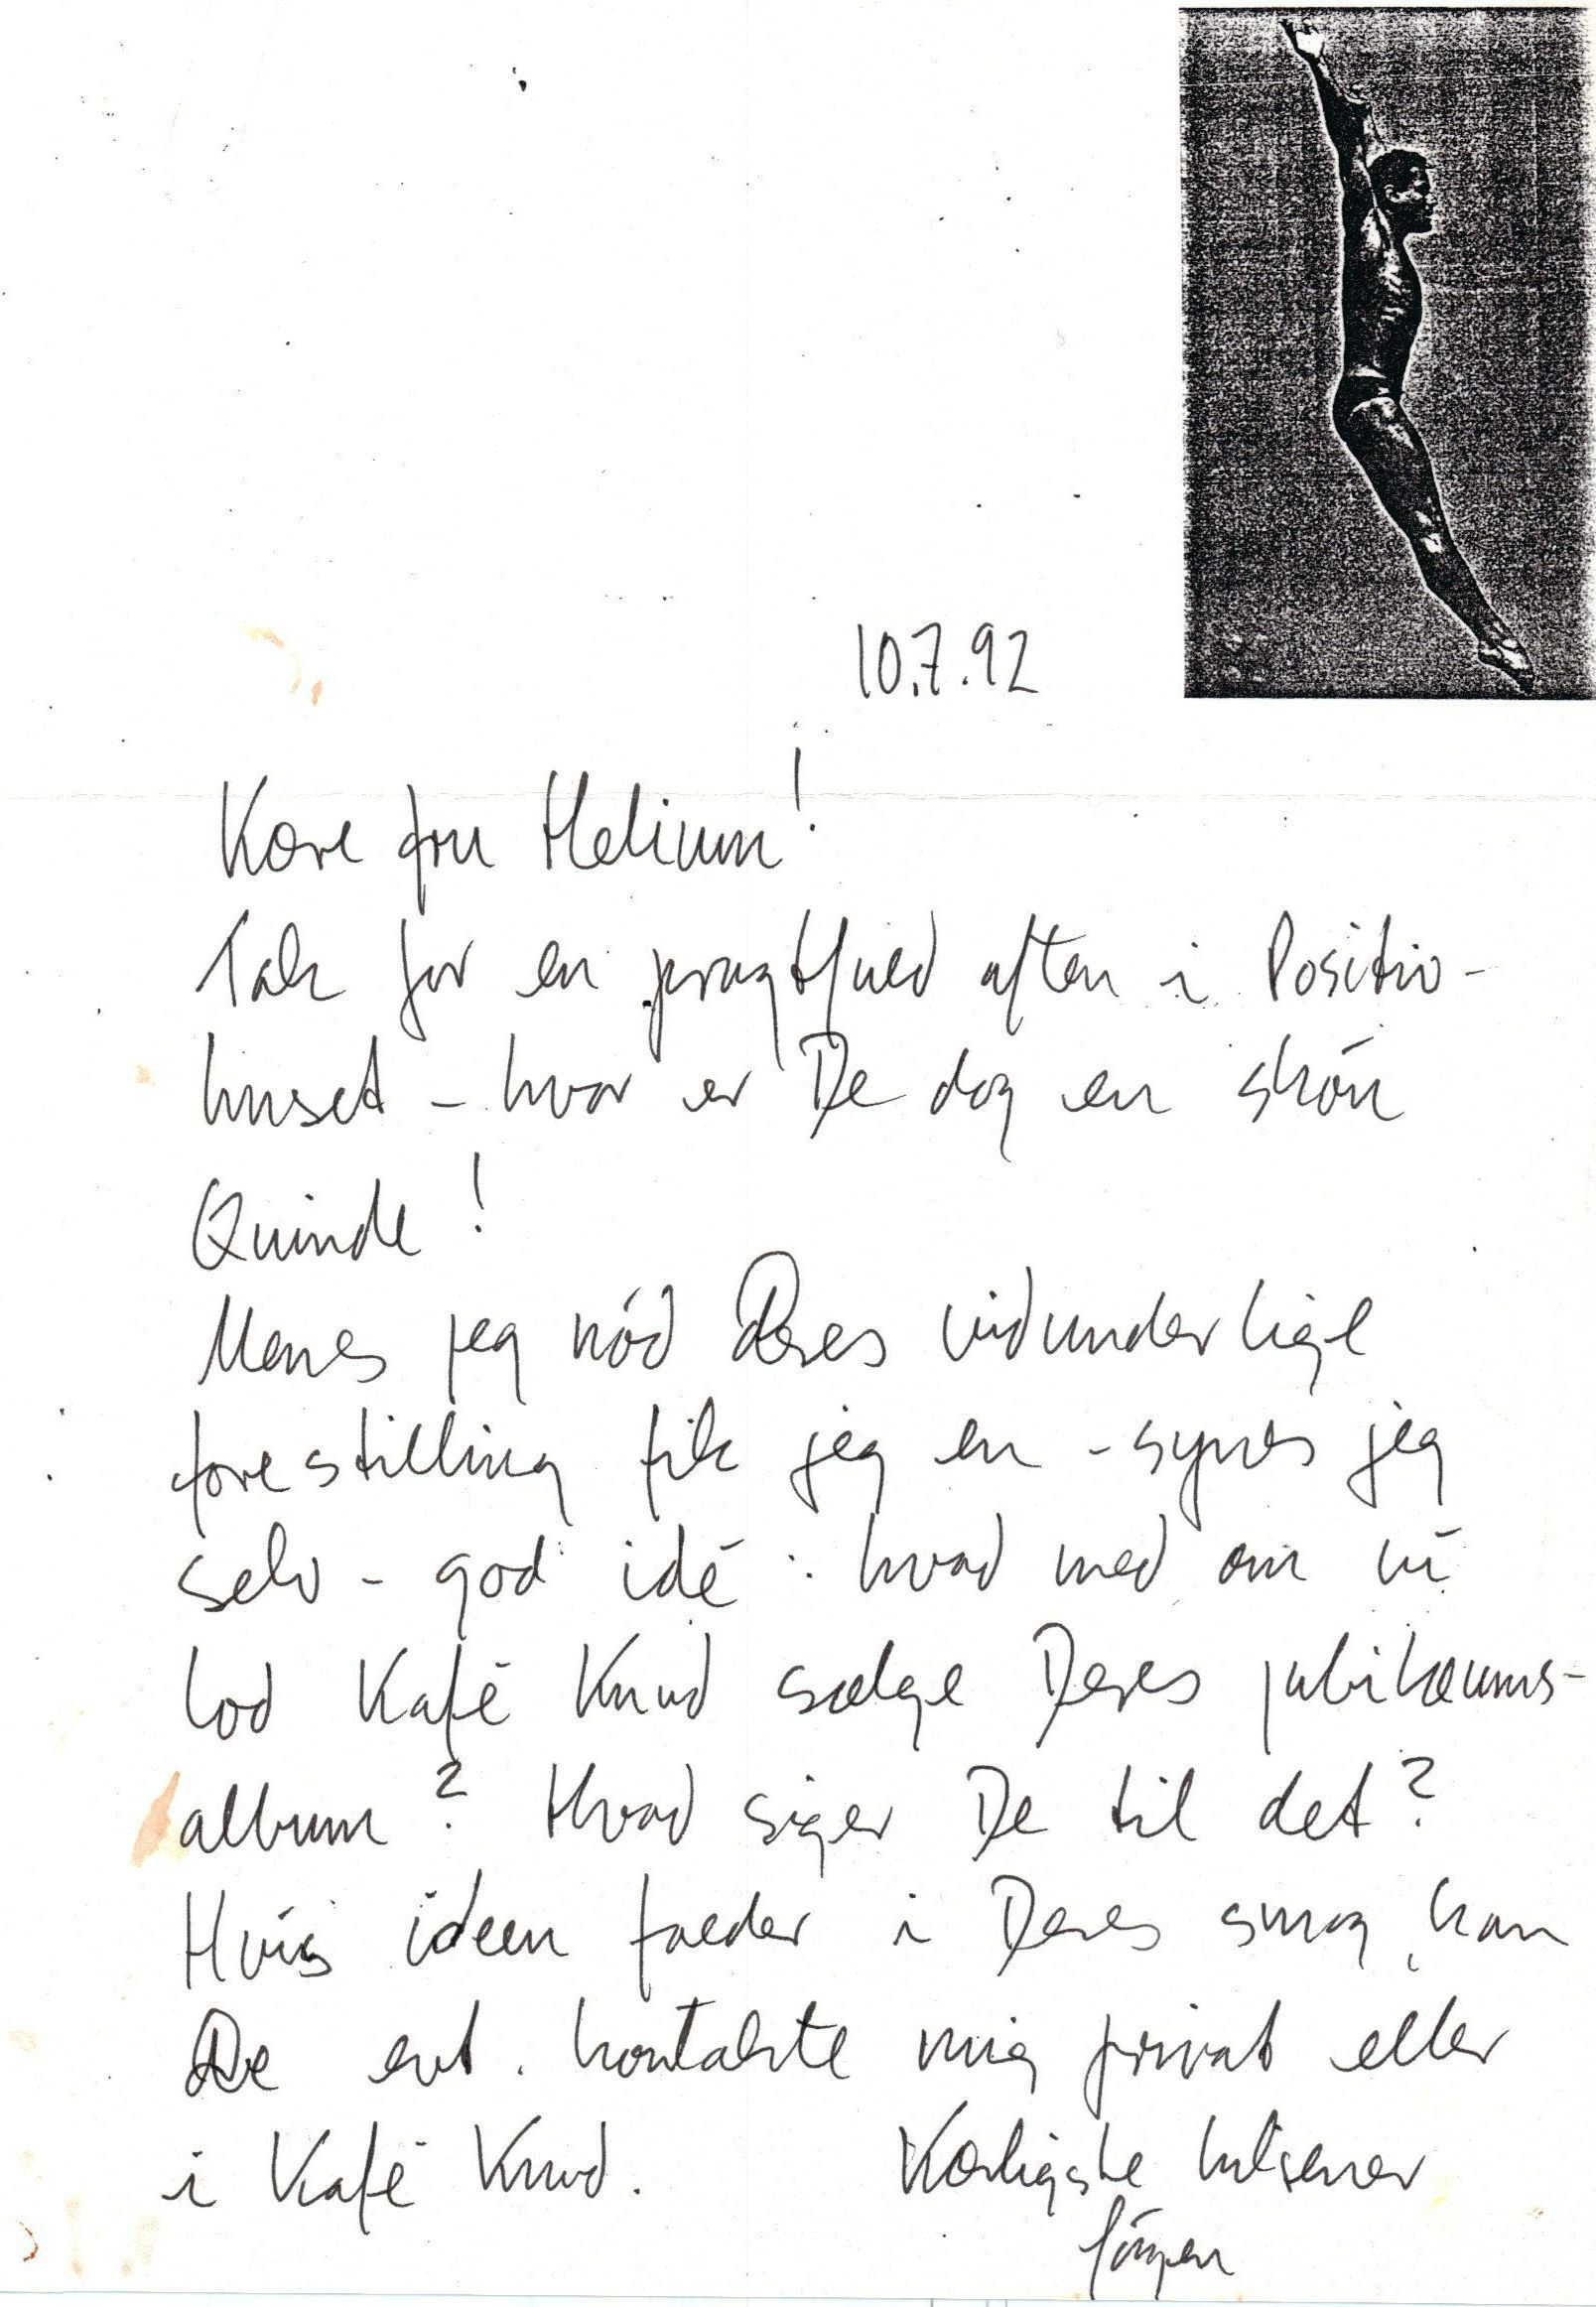 10.7.92
Kære fru Helium!
Tak for en pragtfuld aften i Positiv-
huset - hvor er De dog en skön
Quinde!
Mens jeg nöd Deres vidunderlige
forestilling fik jeg en - synes jeg
selv - god idé : hvad med om vi
lod Kafé Knud sælge Deres jubilæums-
album? Hvad siger De til det?
Hvis ideen falder i Deres smag, kan
De evt. kontakte mig privat eller
i Kafé Knud.
Kærligste hilsener
Jörgen